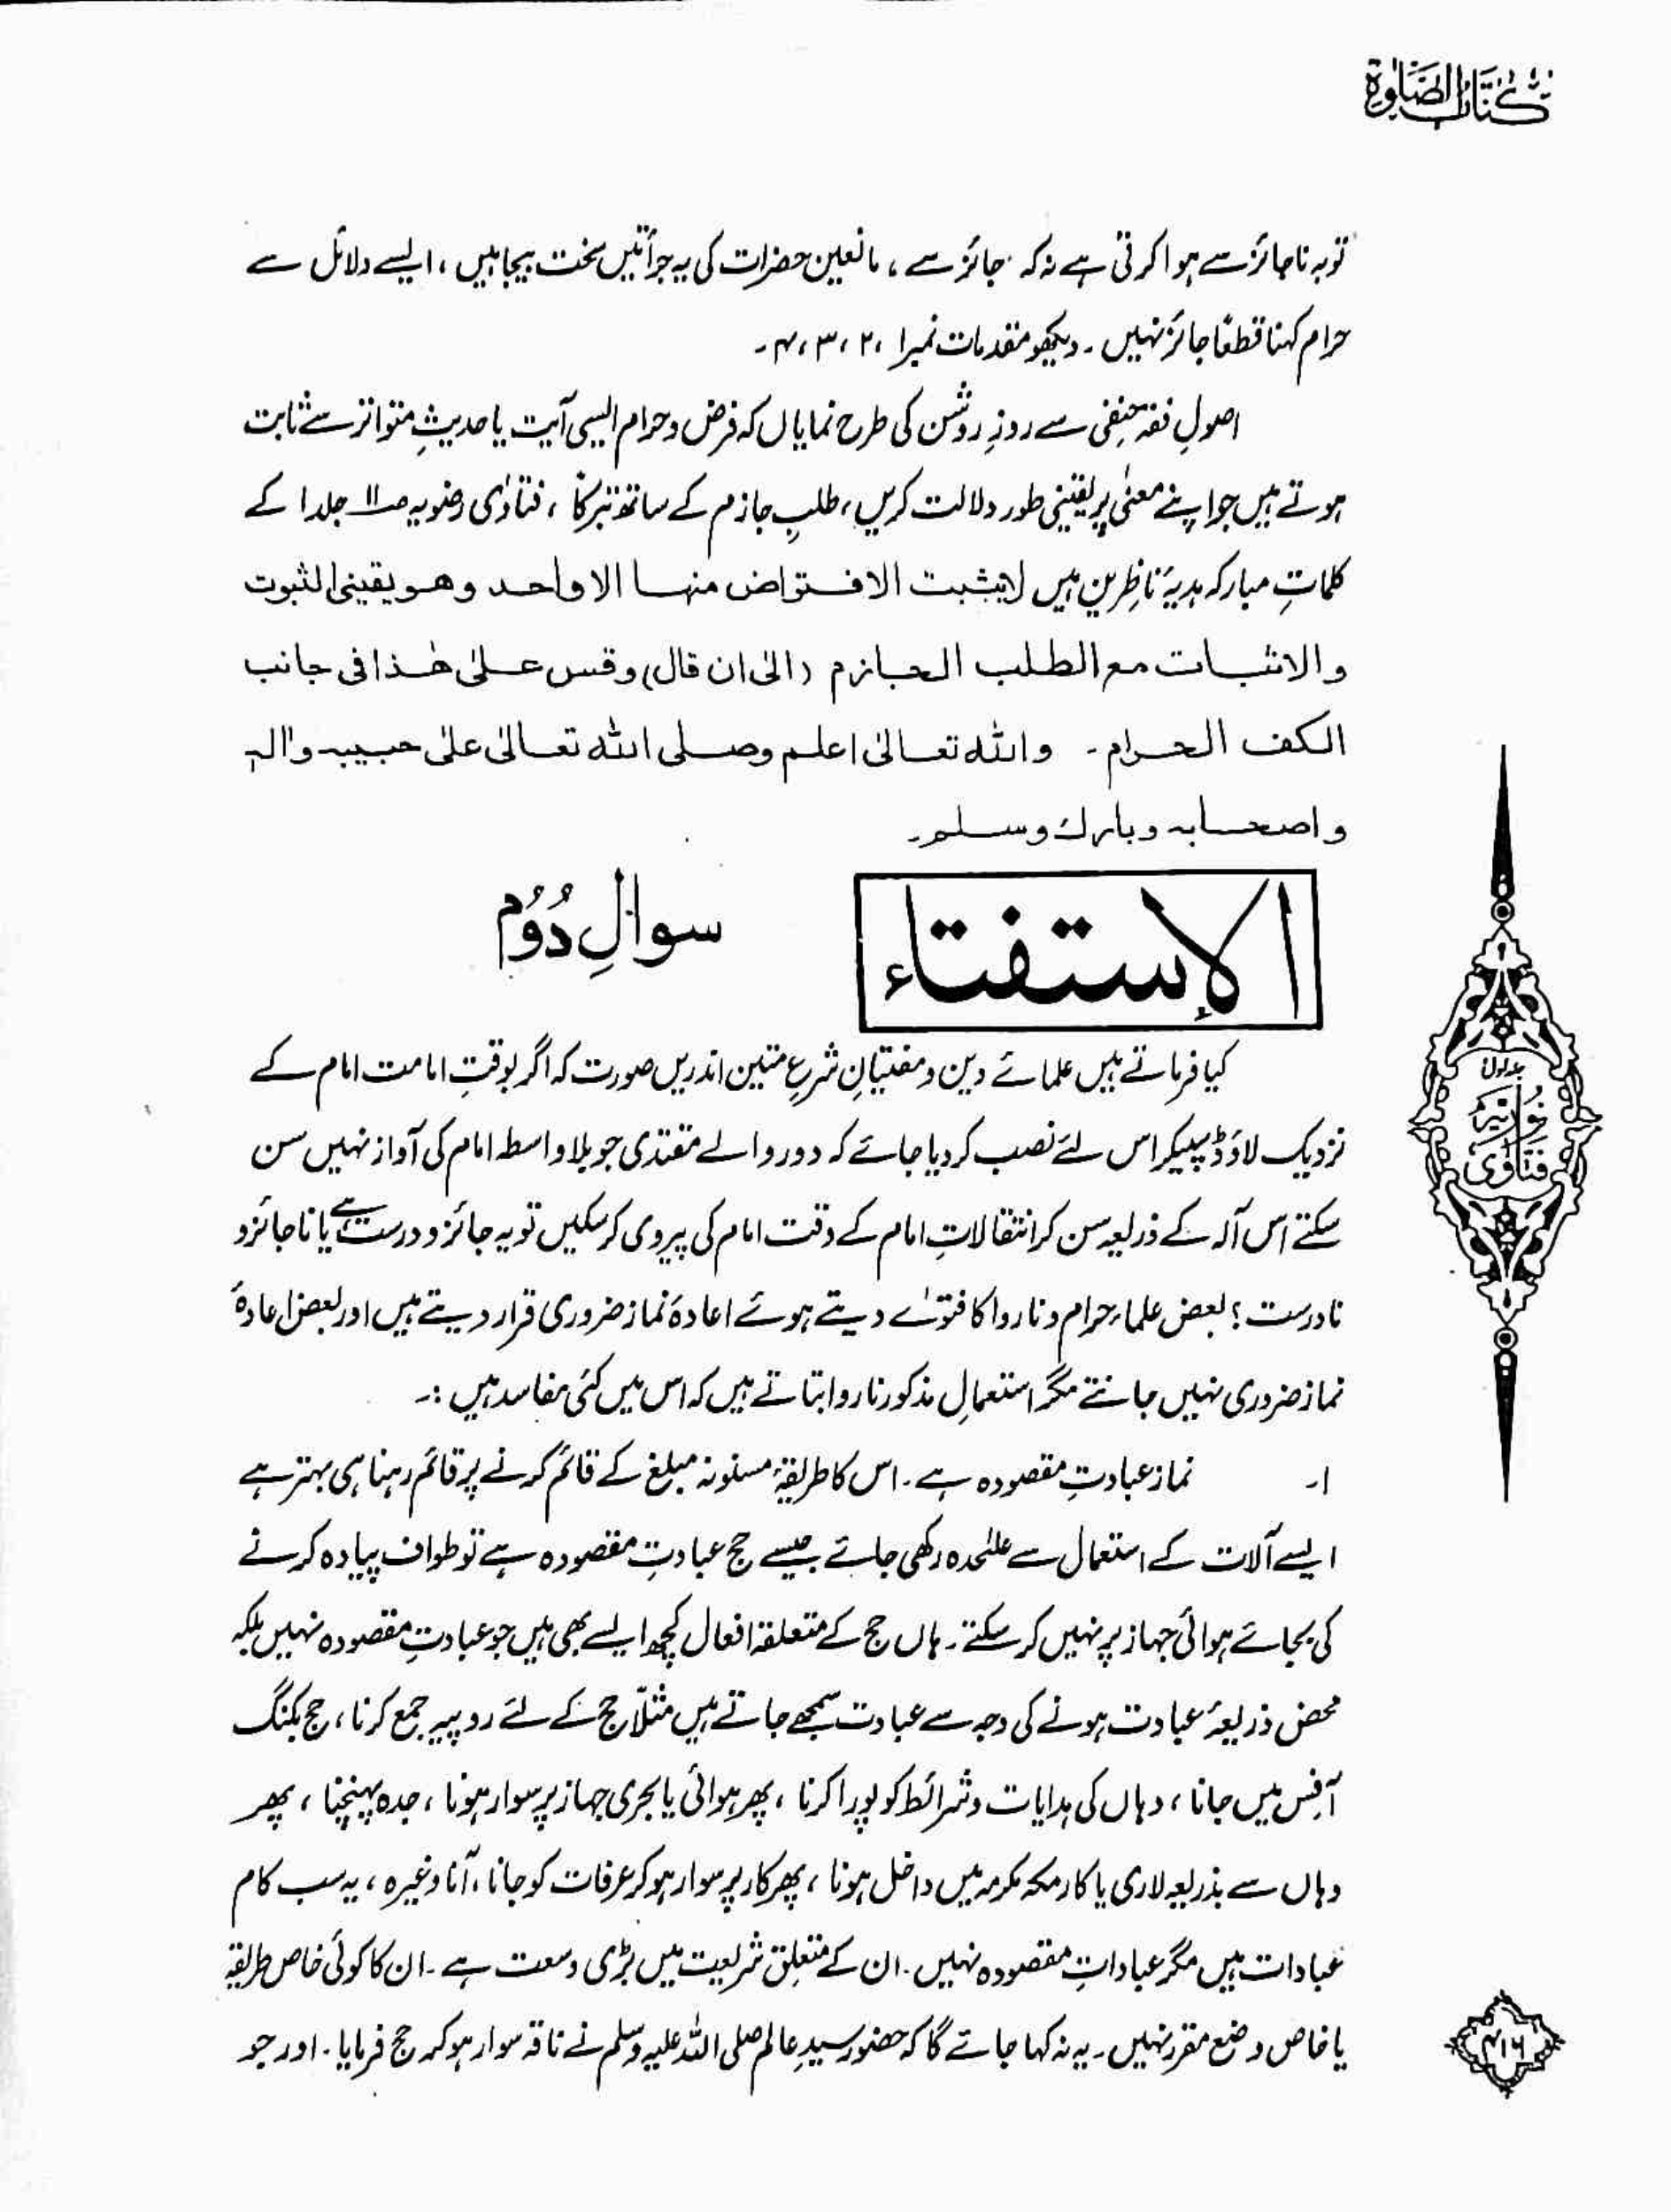 كتاب الصلوة
توبہ ناجائز سے ہوا کرتی ہے نہ کہ جائز سے ، مانعین حضرات کی یہ جرأتیں سخت بیجا ہیں ، ایسے دلائل سے
حرام کہنا قطعًا جائز نہیں ۔ دیکھو مقدمات نمبر ۱ ، ۲ ، ۳ ، ۴ ۔
اصولِ فقہ حنفی سے روزِ روشن کی طرح نمایاں کہ فرض و حرام ایسی آیت یا حدیثِ متواتر سے ثابت
ہوتے ہیں جو اپنے معنٰی پر یقینی طور دلالت کریں ، طلبِ جازم کے ساتھ تبرکًا ، فتاوٰی رضویہ صـ۱۱ جلد ۱ کے
کلماتِ مبارکہ ہدیۂ ناظرین ہیں لایثبت الافتراض منہا الا واحد وھو یقینی الثبوت
والاثبات مع الطلب الجازم (الی ان قال) وقس علیٰ ھٰذا فی جانب
الکف الحرام ۔ واللہ تعالیٰ اعلم وصلی اللہ تعالیٰ علیٰ حبیبہ واٰلہ
واصحابہ وبارک وسلم ۔
الاستفتاء
سوالِ دُوُم
کیا فرماتے ہیں علمائے دین و مفتیانِ شرعِ متین اندریں صورت کہ اگر بوقتِ امامت امام کے
نزدیک لاؤڈ سپیکر اس لئے نصب کر دیا جائے کہ دور والے مقتدی جو بلا واسطہ امام کی آواز نہیں سن
سکتے اس آلہ کے ذریعہ سن کر انتقالاتِ امام کے وقت امام کی پیروی کر سکیں تو یہ جائز و درست ہے یا ناجائز و
نادرست ؟ بعض علماء حرام و ناروا کا فتوٰے دیتے ہوئے اعادۂ نماز ضروری قرار دیتے ہیں اور بعض اعادۂ
نماز ضروری نہیں جانتے مگر استعمالِ مذکور ناروا بتاتے ہیں کہ اس میں کئی مفاسد ہیں :۔
۱۔ نماز عبادتِ مقصودہ ہے ۔ اس کا طریقۂ مسنونہ مبلغ کے قائم کرنے پر قائم رہنا ہی بہتر ہے
ایسے آلات کے استعمال سے علیٰحدہ رکھی جائے جیسے حج عبادتِ مقصودہ ہے تو طواف پیادہ کرنے
کی بجائے ہوائی جہاز پر نہیں کر سکتے ۔ ہاں حج کے متعلقہ افعال کچھ ایسے بھی ہیں جو عبادتِ مقصودہ نہیں بلکہ
محض ذریعۂ عبادت ہونے کی وجہ سے عبادت سمجھے جاتے ہیں مثلًا حج کے لئے روپیہ جمع کرنا ، حج بکنگ
آفس میں جانا ، وہاں کی ہدایات و شرائط کو پورا کرنا ، پھر ہوائی یا بحری جہاز پر سوار ہونا ، جدہ پہنچنا ، پھر
وہاں سے بذریعہ لاری یا کار مکہ مکرمہ میں داخل ہونا ، پھر کار پر سوار ہو کر عرفات کو جانا ، آنا وغیرہ ، یہ سب کام
عبادات ہیں مگر عباداتِ مقصودہ نہیں ۔ ان کے متعلق شریعت میں بڑی وسعت ہے ۔ ان کا کوئی خاص طریقہ
یا خاص وضع مقرر نہیں ۔ یہ نہ کہا جائے گا کہ حضور سیدِ عالم صلی اللہ علیہ وسلم نے ناقہ سوار ہو کر حج فرمایا ۔ اور جو
جلد اول
نوریہ
فتاوٰی
۴۱۶